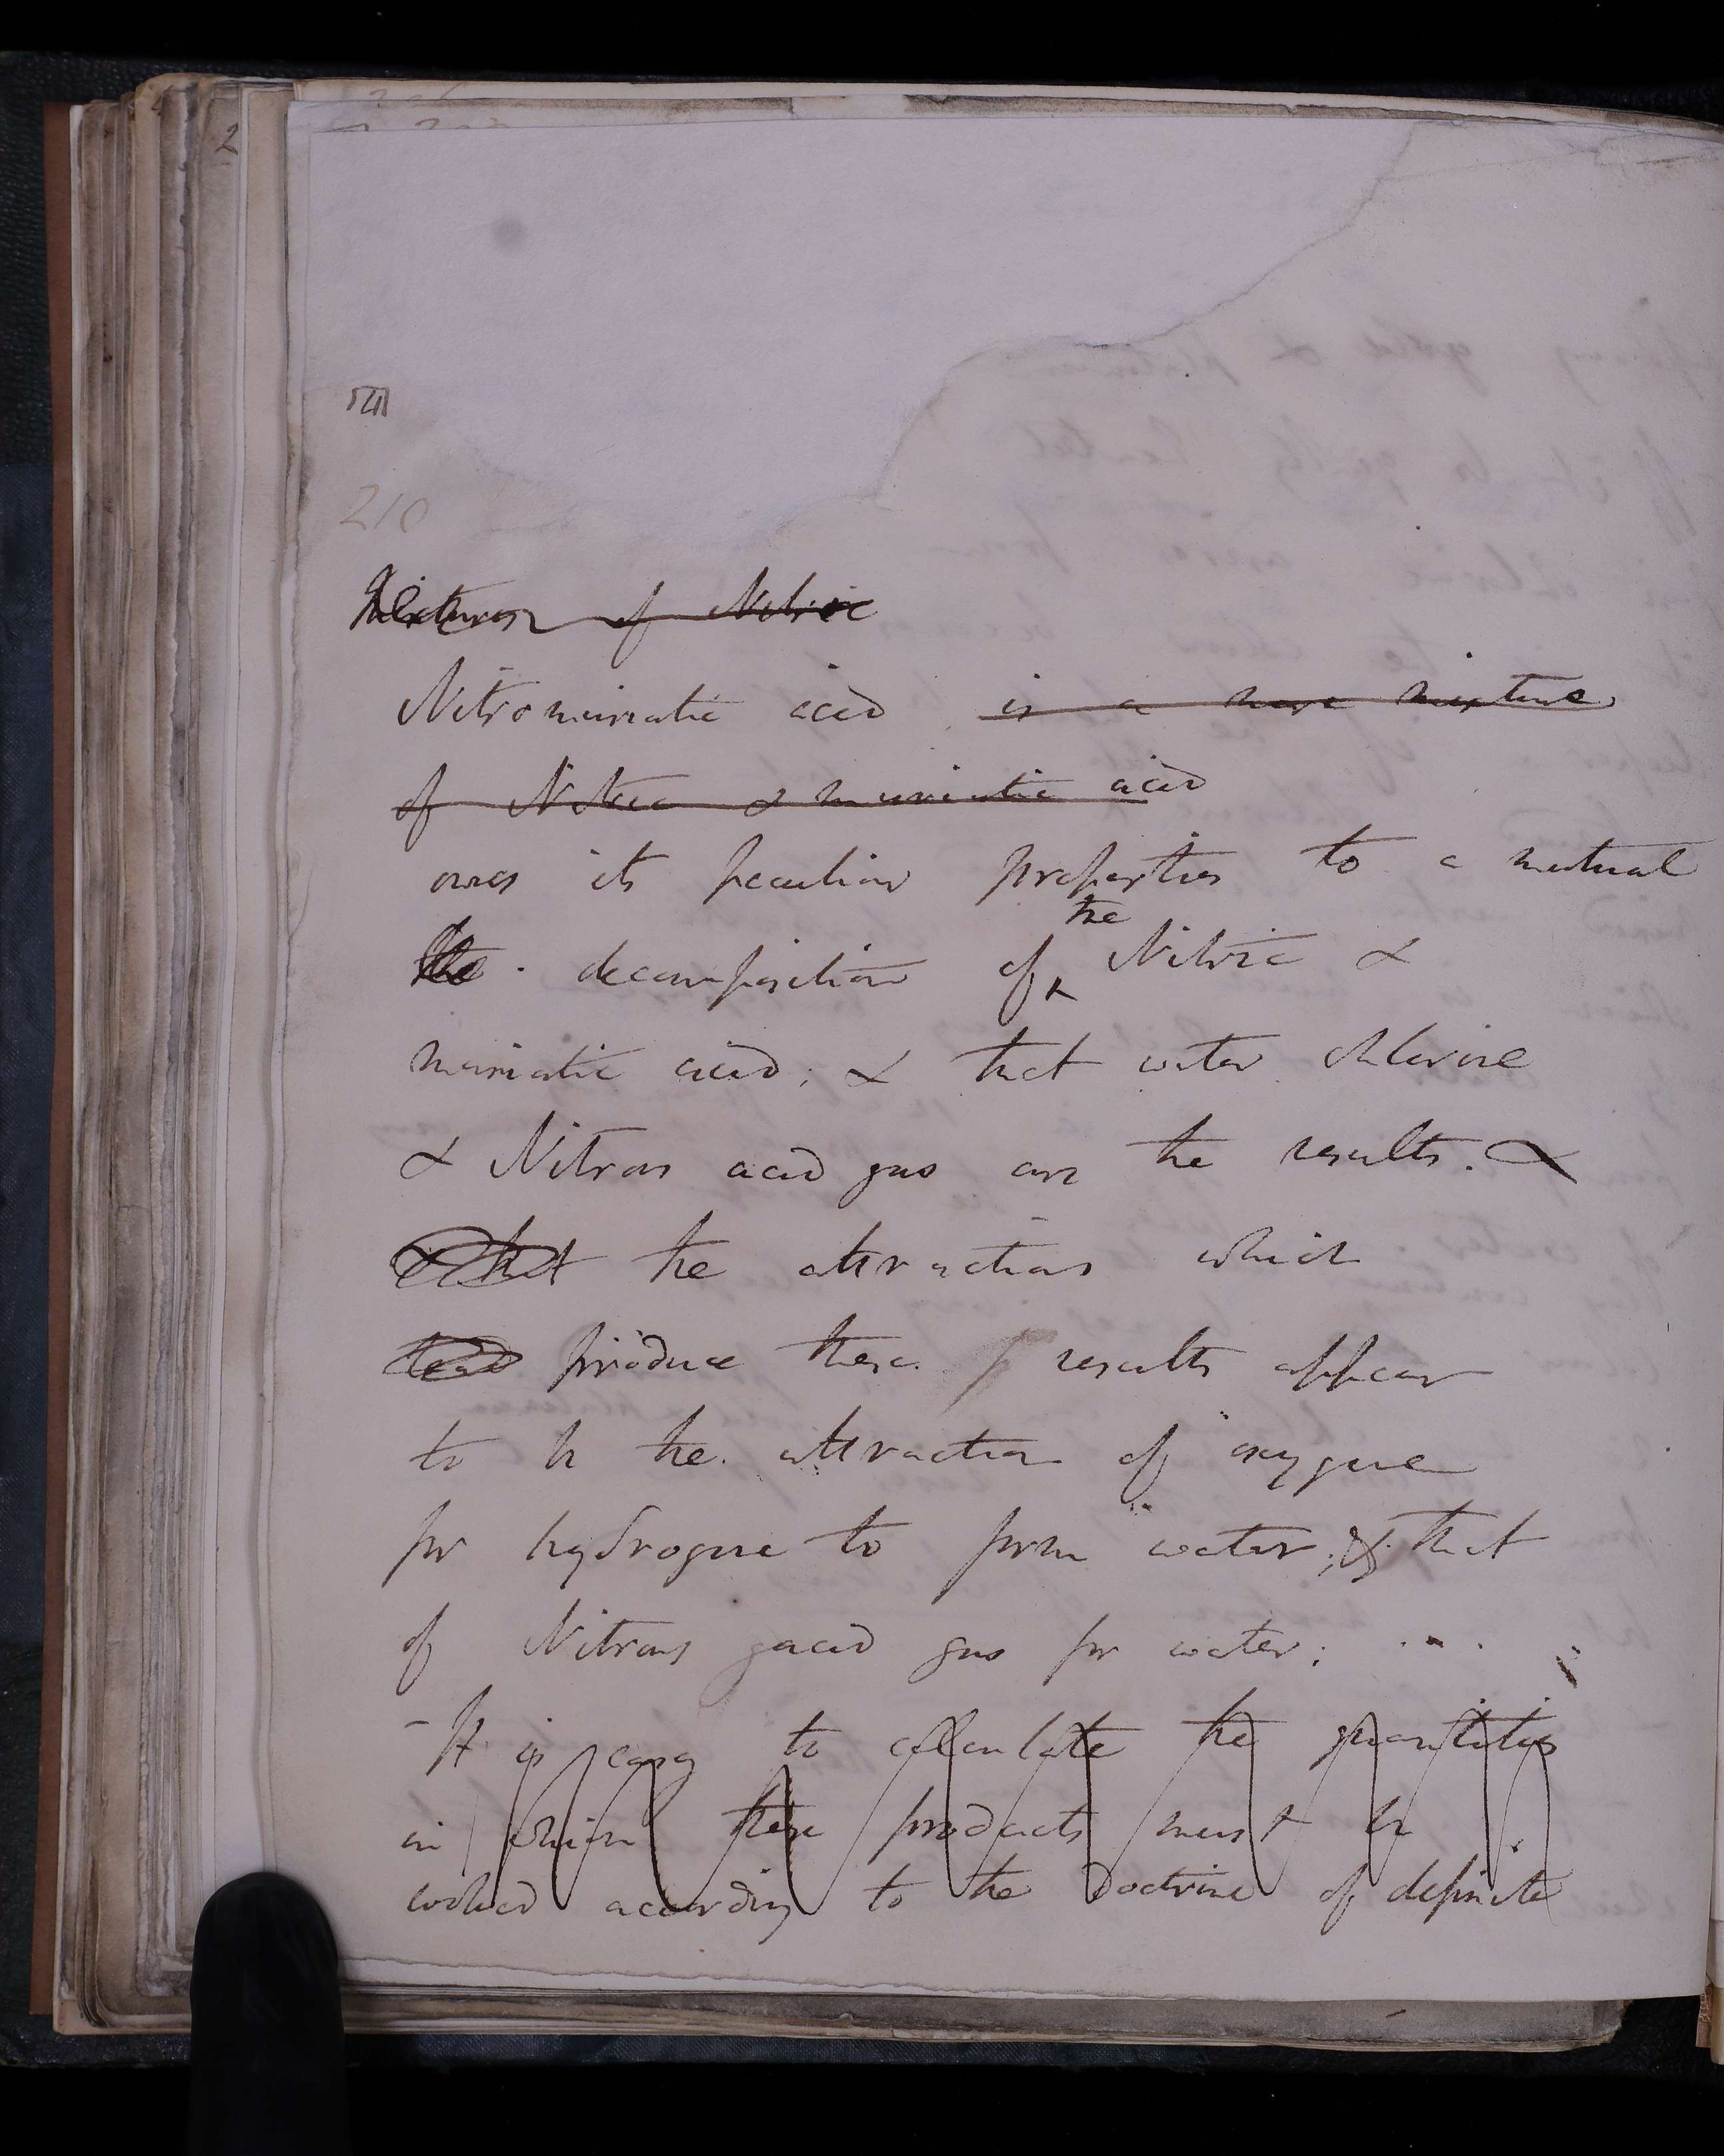 210
Mixtures of Nitric
Nitromuriatic acid is a mere mixture
of Nitric & muriatic acid
owes its peculiar properties to a mutual
the decomposition of the Nitric &
muriatic acid; & that water chlorine
& Nitrous acid gas are the results. &
& that the attractions which
produce these p results appear
to be the attraction of oxygene
for hydrogene to form water; & that
of Nitrous gacid gas for water;
- It is easy to calculate the quantities
in which these products must be
evolved according to the Doctrine of definite